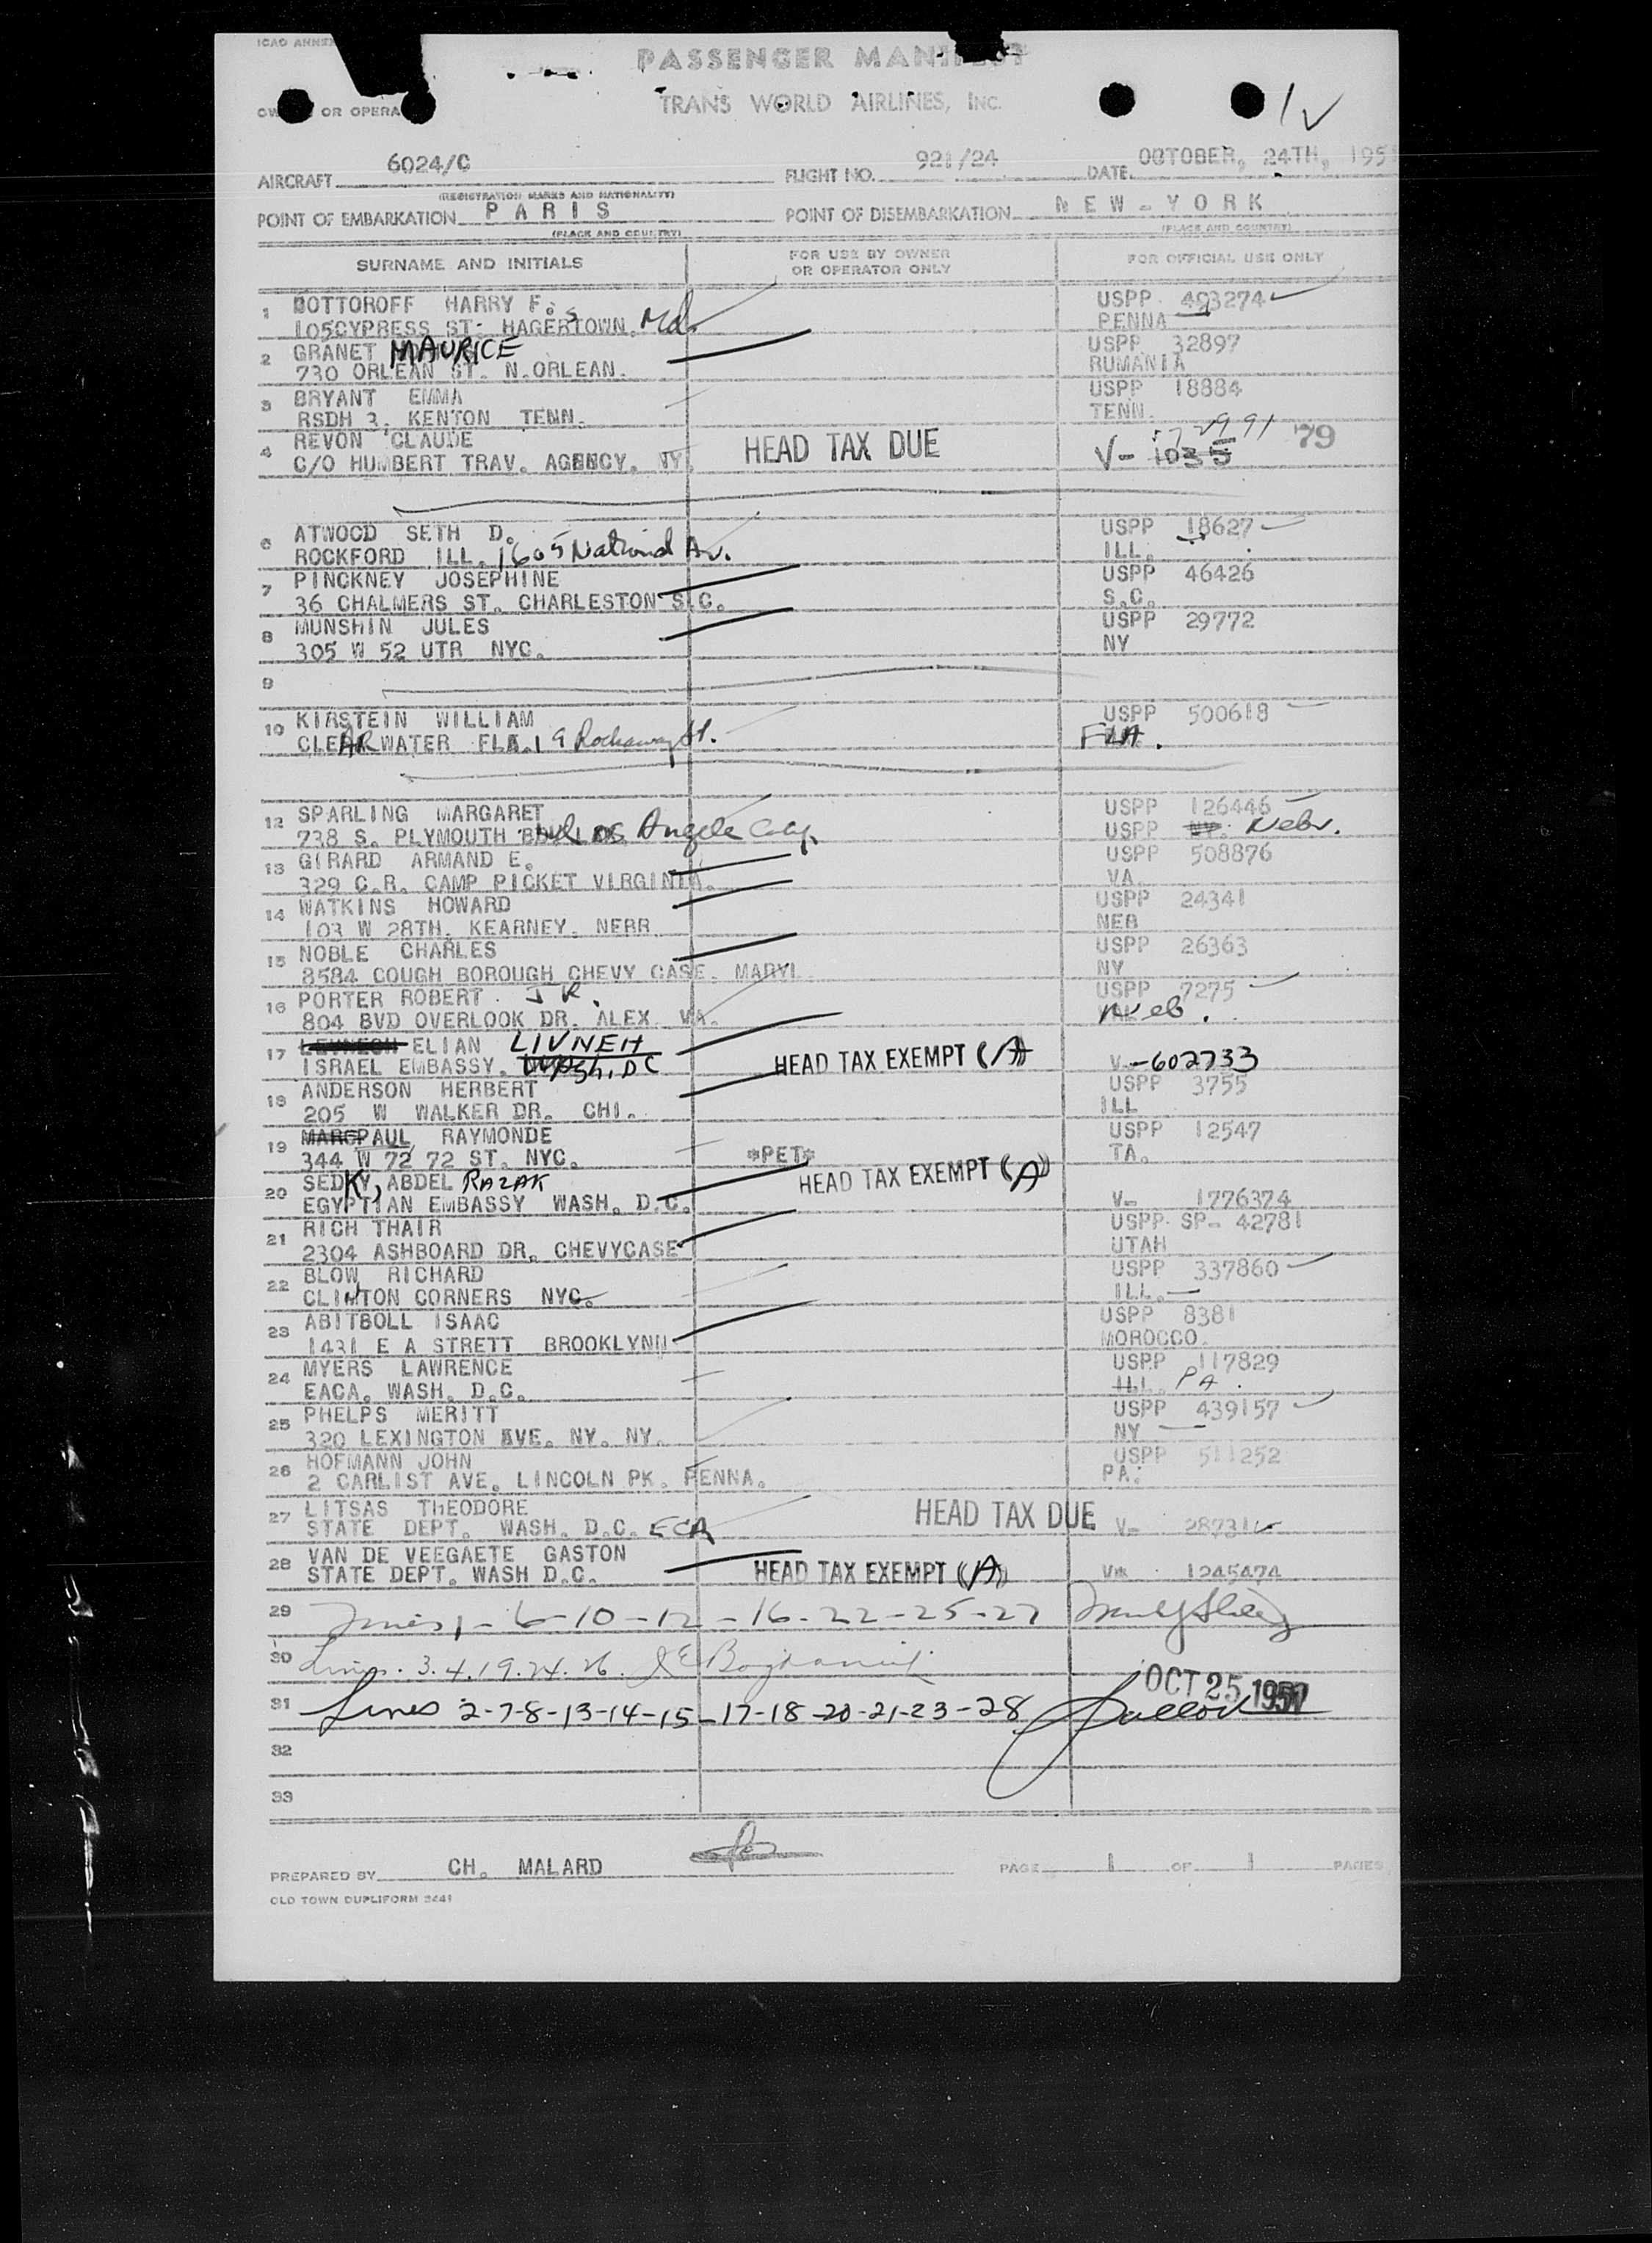 ICAO ANNEX
PASSENGER MANIFEST
OR OPERA
TRANS WORLD AIRLINES, INC.
1
AIRCRAFT 6024/C FLIGHT NO. 921/24 DATE OCTOBER, 24TH, 195
(REGISTRATION MARKS AND NATIONALITY)
POINT OF EMBARKATION P A R I S POINT OF DISEMBARKATION N E W - Y O R K
(PLACE AND COUNTRY) (PLACE AND COUNTRY)
SURNAME AND INITIALS FOR USE BY OWNER OR OPERATOR ONLY FOR OFFICIAL USE ONLY
1 BOTTOROFF HARRY F. S USPP 493274
105CYPRESS ST- HAGERTOWN. Md. PENNA
2 GRANET MAURICE USPP 32897
730 ORLEAN ST. N.ORLEAN. RUMANIA
3 BRYANT EMMA USPP 18884
RSDH 3. KENTON TENN. TENN.
4 REVON CLAUDE HEAD TAX DUE 79
C/O HUMBERT TRAV. AGENCY. NY. V- 1035
6 ATWOOD SETH D. USPP 18627
ROCKFORD ILL. 1605 National Av. ILL.
7 PINCKNEY JOSEPHINE USPP 46426
36 CHALMERS ST. CHARLESTON S.C. S.C.
8 MUNSHIN JULES USPP 29772
305 W 52 UTR NYC. NY
9
10 KIRSTEIN WILLIAM USPP 500618
CLEARWATER FLA. 19 Rockaway St. FLA.
12 SPARLING MARGARET USPP 126446
738 S. PLYMOUTH Blvd Los Angele Caly. USPP NY. Nebr.
13 GIRARD ARMAND E. USPP 508876
329 C.R. CAMP PICKET VIRGINIA. VA.
14 WATKINS HOWARD USPP 24341
103 W 28TH. KEARNEY. NEBR. NEB
15 NOBLE CHARLES USPP 26363
8584 COUGH BOROUGH CHEVY CASE. MARYL. NY
16 PORTER ROBERT. JR. USPP 7275
804 BVD OVERLOOK DR. ALEX VA. Neb.
17 ELIAN LIVNEH
ISRAEL EMBASSY. Wash, DC HEAD TAX EXEMPT (A) V-602733
18 ANDERSON HERBERT USPP 3755
205 W WALKER DR. CHI. ILL
19 MARCPAUL RAYMONDE USPP 12547
344 W 72 72 ST. NYC. *PET* TA.
20 SEDKY, ABDEL RAZAK HEAD TAX EXEMPT (A)
EGYPTIAN EMBASSY WASH. D.C. V- 1776374
21 RICH THAIR USPP SP- 42781
2304 ASHBOARD DR. CHEVYCASE UTAH
22 BLOW RICHARD USPP 337860
CLINTON CORNERS NYC. ILL.
23 ABITBOLL ISAAC USPP 8381
1431 E A STRETT BROOKLYNN MOROCCO.
24 MYERS LAWRENCE USPP 117829
EACA. WASH. D.C. ILL. PA.
25 PHELPS MERITT USPP 439157
320 LEXINGTON AVE. NY. NY. NY
26 HOFMANN JOHN USPP 511252
2 CARLIST AVE. LINCOLN PK. PENNA. PA.
27 LITSAS THEODORE HEAD TAX DUE
STATE DEPT. WASH. D.C. ECA V-
28 VAN DE VEEGAETE GASTON
STATE DEPT. WASH D.C. HEAD TAX EXEMPT (A) V* 1245474
29 Lines 1-6-10-12-16-22-25-27
30 Lines. 3.4.19.24.26.
OCT 25 1951
31 Lines 2-7-8-13-14-15-17-18-20-21-23-28
32
33
PREPARED BY CH. MALARD PAGE 1 OF 1 PAGES
OLD TOWN DUPLIFORM 2441